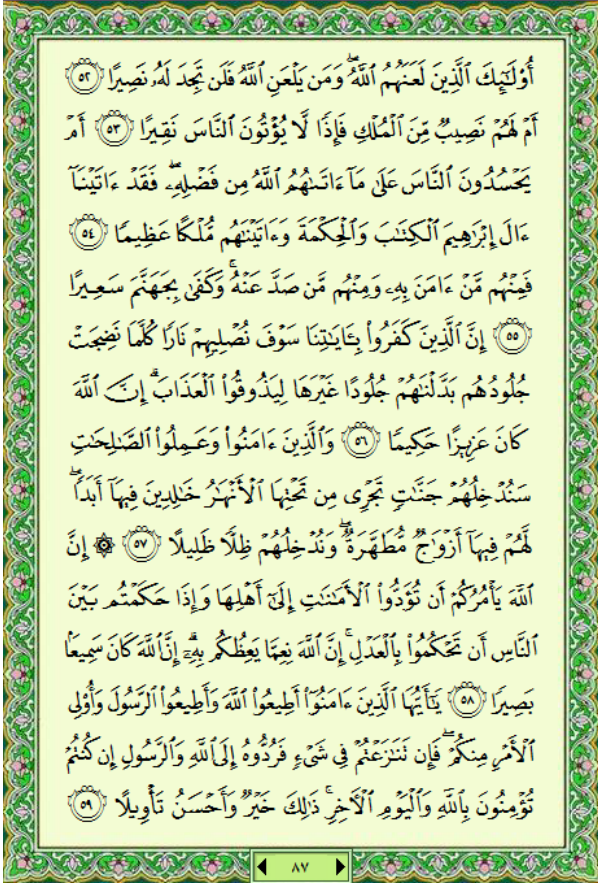 أُوْلَٰٓئِكَ ٱلَّذِينَ لَعَنَهُمُ ٱللَّهُۖ وَمَن يَلْعَنِ ٱللَّهُ فَلَن تَجِدَ لَهُۥ نَصِيرًا ٥٢
أَمْ لَهُمْ نَصِيبٌ مِّنَ ٱلْمُلْكِ فَإِذًا لَّا يُؤْتُونَ ٱلنَّاسَ نَقِيرًا ٥٣ أَمْ
يَحْسُدُونَ ٱلنَّاسَ عَلَىٰ مَآ ءَاتَىٰهُمُ ٱللَّهُ مِن فَضْلِهِۦۖ فَقَدْ ءَاتَيْنَآ
ءَالَ إِبْرَٰهِيمَ ٱلْكِتَٰبَ وَٱلْحِكْمَةَ وَءَاتَيْنَٰهُم مُّلْكًا عَظِيمًا ٥٤
فَمِنْهُم مَّنْ ءَامَنَ بِهِۦ وَمِنْهُم مَّن صَدَّ عَنْهُۚ وَكَفَىٰ بِجَهَنَّمَ سَعِيرًا
٥٥ إِنَّ ٱلَّذِينَ كَفَرُوا۟ بِـَٔايَٰتِنَا سَوْفَ نُصْلِيهِمْ نَارًا كُلَّمَا نَضِجَتْ
جُلُودُهُم بَدَّلْنَٰهُمْ جُلُودًا غَيْرَهَا لِيَذُوقُوا۟ ٱلْعَذَابَۗ إِنَّ ٱللَّهَ
كَانَ عَزِيزًا حَكِيمًا ٥٦ وَٱلَّذِينَ ءَامَنُوا۟ وَعَمِلُوا۟ ٱلصَّٰلِحَٰتِ
سَنُدْخِلُهُمْ جَنَّٰتٍ تَجْرِى مِن تَحْتِهَا ٱلْأَنْهَٰرُ خَٰلِدِينَ فِيهَآ أَبَدًاۖ
لَّهُمْ فِيهَآ أَزْوَٰجٌ مُّطَهَّرَةٌۖ وَنُدْخِلُهُمْ ظِلًّا ظَلِيلًا ٥٧ ۞ إِنَّ
ٱللَّهَ يَأْمُرُكُمْ أَن تُؤَدُّوا۟ ٱلْأَمَٰنَٰتِ إِلَىٰٓ أَهْلِهَا وَإِذَا حَكَمْتُم بَيْنَ
ٱلنَّاسِ أَن تَحْكُمُوا۟ بِٱلْعَدْلِۚ إِنَّ ٱللَّهَ نِعِمَّا يَعِظُكُم بِهِۦٓۗ إِنَّ ٱللَّهَ كَانَ سَمِيعًۢا
بَصِيرًا ٥٨ يَٰٓأَيُّهَا ٱلَّذِينَ ءَامَنُوٓا۟ أَطِيعُوا۟ ٱللَّهَ وَأَطِيعُوا۟ ٱلرَّسُولَ وَأُو۟لِى
ٱلْأَمْرِ مِنكُمْۖ فَإِن تَنَٰزَعْتُمْ فِى شَىْءٍ فَرُدُّوهُ إِلَى ٱللَّهِ وَٱلرَّسُولِ إِن كُنتُمْ
تُؤْمِنُونَ بِٱللَّهِ وَٱلْيَوْمِ ٱلْأَخِرِۚ ذَٰلِكَ خَيْرٌ وَأَحْسَنُ تَأْوِيلًا ٥٩
٨٧